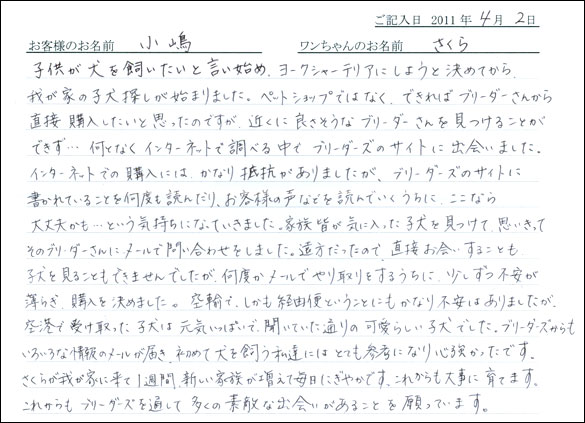 ご記入日 2011年4月2日
お客様のお名前 小嶋 ワンちゃんのお名前 さくら
子供が犬を飼いたいと言い始め、ヨークシャーテリアにしようと決めてから、
我が家の子犬探しが始まりました。ペットショップではなく、できればブリーダーさんから
直接購入したいと思ったのですが、近くに良さそうなブリーダーさんを見つけることが
できず… 何となくインターネットで調べる中でブリーダーズのサイトに出会いました。
インターネットでの購入には、かなり抵抗がありましたが、ブリーダーズのサイトに
書かれていることを何度も読んだり、お客様の声などを読んでいくうちに、ここなら
大丈夫かも…という気持ちになっていきました。家族皆が気に入った子犬を見つけて、思いきって
そのブリーダーさんにメールで問い合わせをしました。遠方だったので、直接お会いすることも
子犬を見ることもできませんでしたが、何度かメールでやり取りをするうちに、少しずつ不安が
薄らぎ、購入を決めました。空輸で、しかも経由便ということにもかなり不安はありましたが、
空港で受け取った子犬は元気いっぱいで、聞いていた通りの可愛らしい子犬でした。ブリーダーズからも
いろいろな情報のメールが届き、初めて犬を飼う私達にはとても参考になり心強かったです。
さくらが我が家に来て1週間、新しい家族が増えて毎日にぎやかです。これからも大事に育てます。
これからもブリーダーズを通して多くの素敵な出会いがあることを願っています。